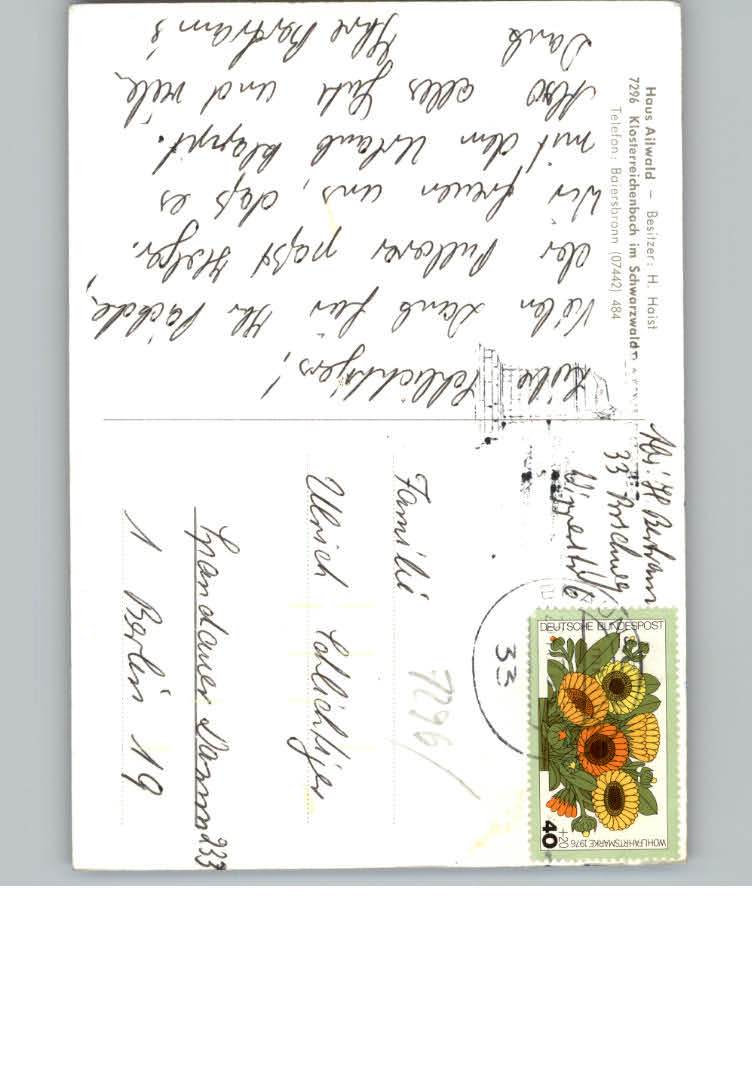 Haus Ailwald – Besitzer: H. Haist
7296 Klosterreichenbach im Schwarzwald
Telefon: Baiersbronn (07442) 484
Liebe Schlichtijers!
Vielen Dank für Ihr Päckche,
der Pullover paßt Helga.
Wir freuen uns, daß es
mit dem Urlaub klappt.
Also alles Gute und viele
Dank Ihre Bertram's
Abs: H Bertram
33 Brschweig
33
DEUTSCHE BUNDESPOST
WOHLFAHRTSMARKE 1976
40
+20
7296
Familie
Ulrich Schlichtijer
Spandauer Damm 233
1 Berlin 19